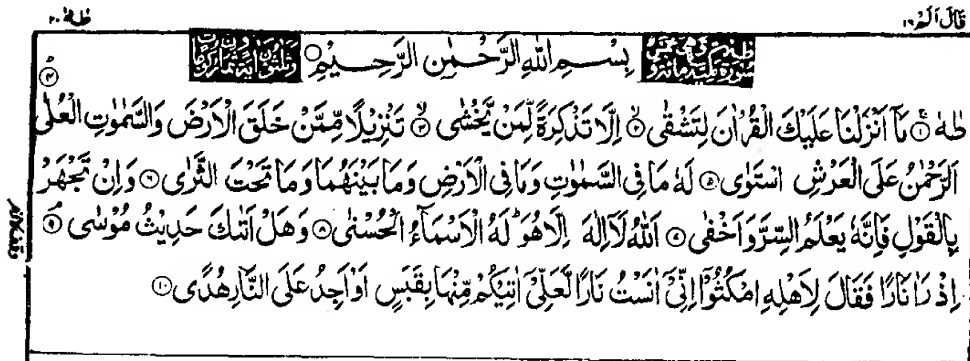 قَالَ اَلَمْ ١٦ طٰهٰ ٢٠
بِسْمِ اللهِ الرَّحْمٰنِ الرَّحِيْمِ
طٰهٰ ۝١ مَآ اَنْزَلْنَا عَلَيْكَ الْقُرْاٰنَ لِتَشْقٰى ۝٢ اِلَّا تَذْكِرَةً لِّمَنْ يَّخْشٰى ۝٣ تَنْزِيْلًا مِّمَّنْ خَلَقَ الْاَرْضَ وَالسَّمٰوٰتِ الْعُلٰى ۝٤
اَلرَّحْمٰنُ عَلَى الْعَرْشِ اسْتَوٰى ۝٥ لَهٗ مَا فِى السَّمٰوٰتِ وَمَا فِى الْاَرْضِ وَمَا بَيْنَهُمَا وَمَا تَحْتَ الثَّرٰى ۝٦ وَاِنْ تَجْهَرْ
بِالْقَوْلِ فَاِنَّهٗ يَعْلَمُ السِّرَّ وَاَخْفٰى ۝٧ اَللهُ لَآ اِلٰهَ اِلَّا هُوَ ؕ لَهُ الْاَسْمَآءُ الْحُسْنٰى ۝٨ وَهَلْ اَتٰىكَ حَدِيْثُ مُوْسٰى ۝٩
اِذْ رَاٰ نَارًا فَقَالَ لِاَهْلِهِ امْكُثُوْٓا اِنِّىْٓ اٰنَسْتُ نَارًا لَّعَلِّىْٓ اٰتِيْكُمْ مِّنْهَا بِقَبَسٍ اَوْ اَجِدُ عَلَى النَّارِ هُدًى ۝١٠